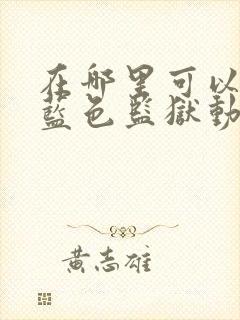 在哪里可以
藍色監獄動
黃志雄